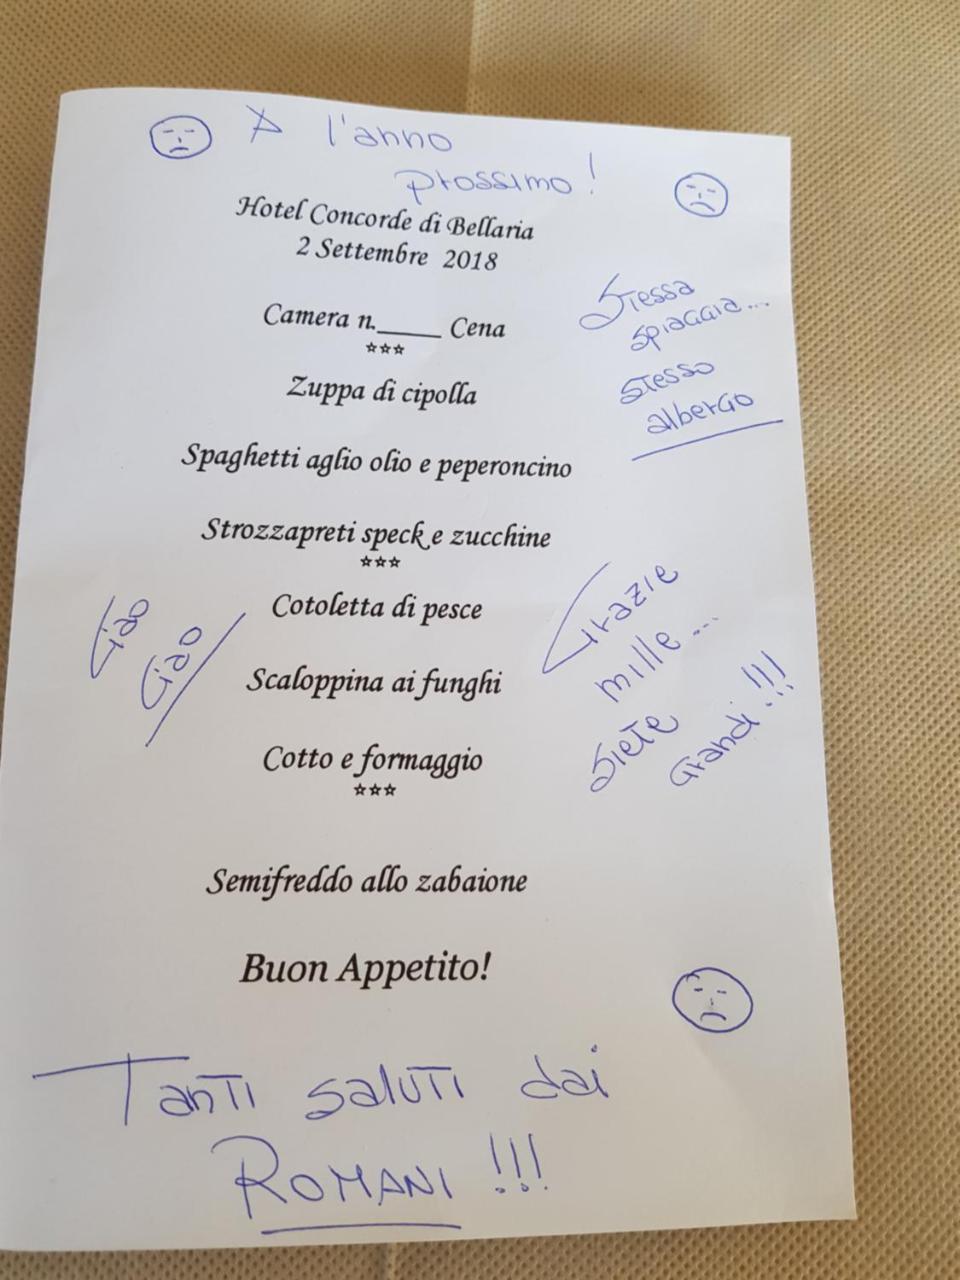 A l'anno
prossimo!
Hotel Concorde di Bellaria
2 Settembre 2018
Stessa
spiaggia...
stesso
albergo
Camera n._____ Cena
☆☆☆
Zuppa di cipolla
Spaghetti aglio olio e peperoncino
Strozzapreti speck e zucchine
☆☆☆
Cotoletta di pesce
Scaloppina ai funghi
Cotto e formaggio
☆☆☆
Ciao
Ciao
Grazie
mille...
siete
Grandi!!!
Semifreddo allo zabaione
Buon Appetito!
Tanti saluti dai
ROMANI!!!